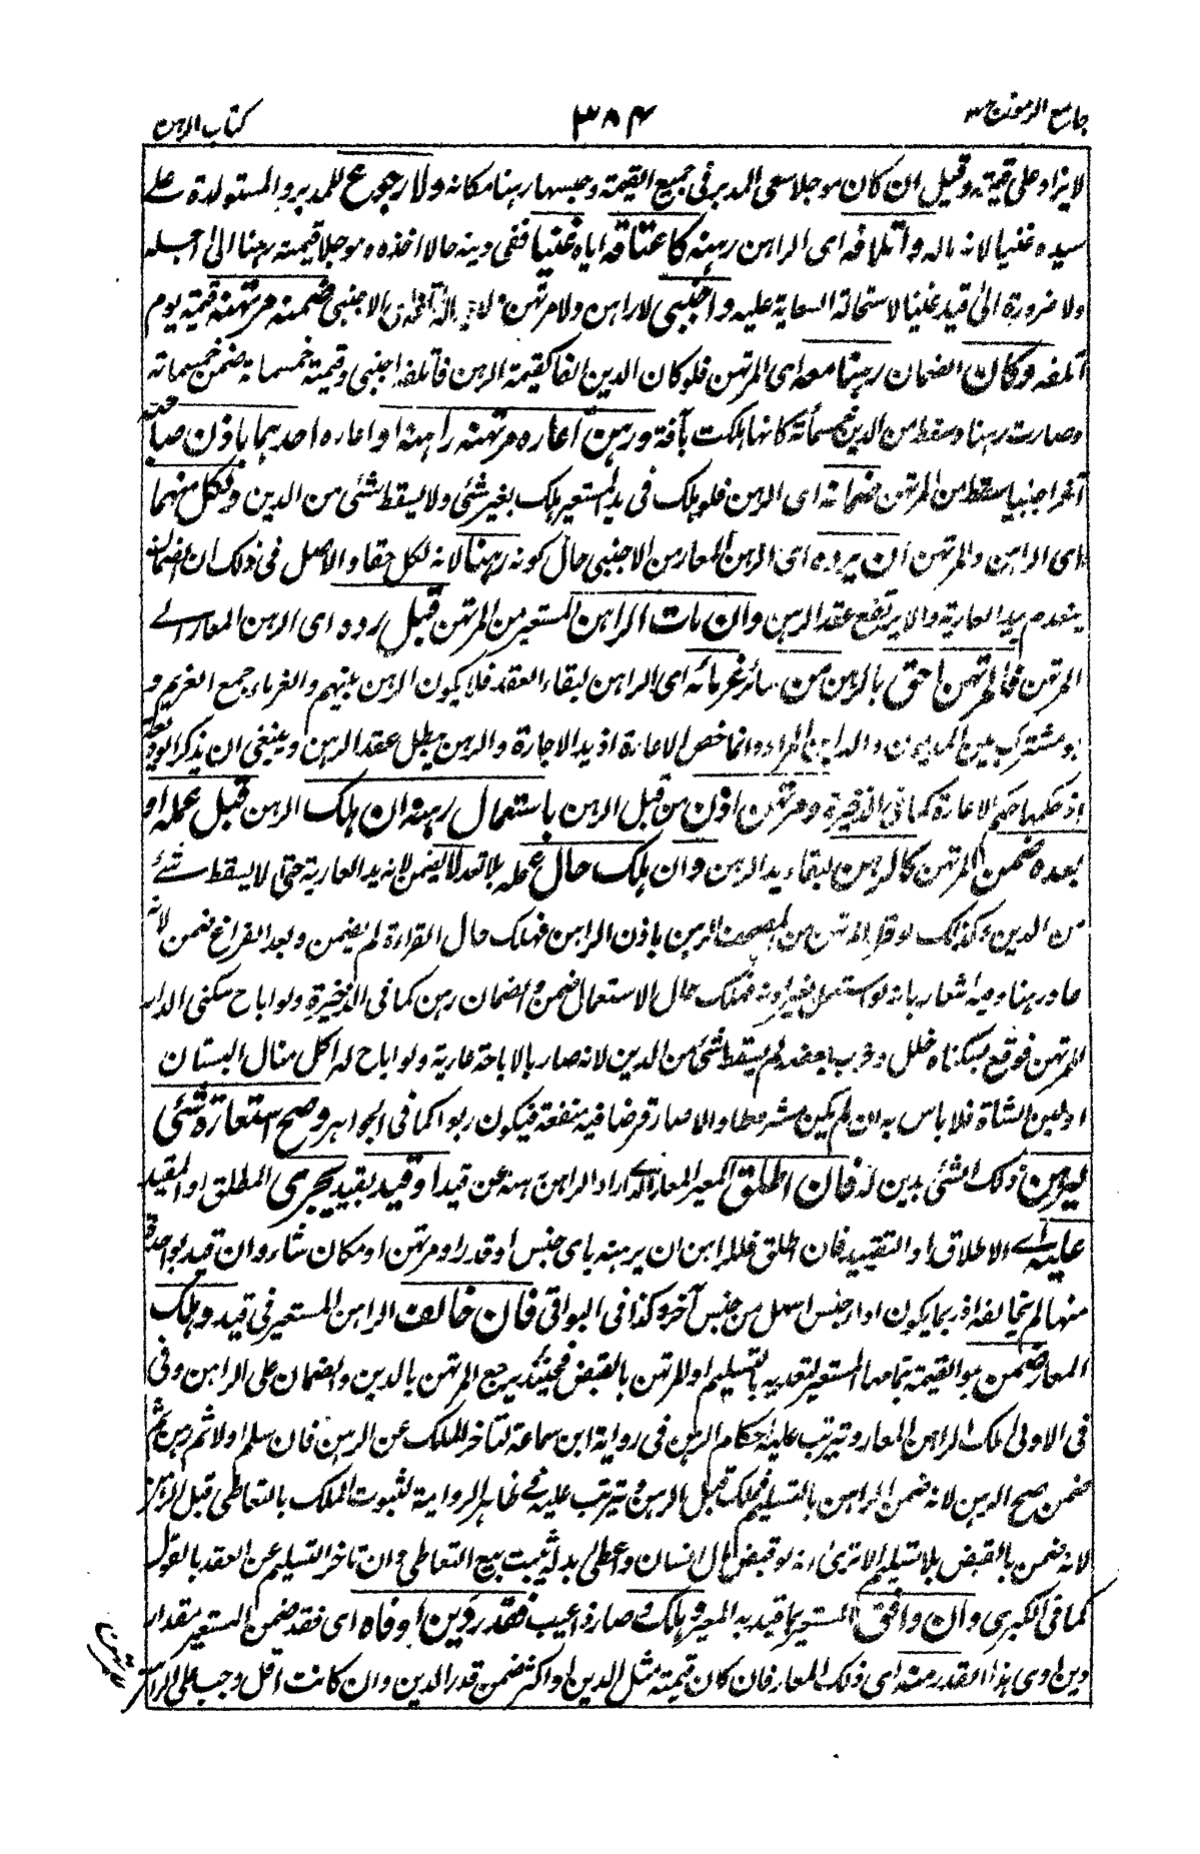 جامع الرموز ج ٣
٣٨٤
كتاب الرهن
لا يزاد على قيمته وقيل ان كان موجلا سعى المدبر فى جميع القيمة وحبسها رهنا مكانه ولا رجوع للمدبر والمستولدة على
سيده غنيا لانه ماله واتلافه اى الراهن رهنه كاعتاقه اياه غنيا ففى دينه حالا اخذه وموجلا قيمته رهنا الى اجله
ولا ضرورة الى قيد غنيا لاستحالة السعاية عليه واجنبى لا راهن ولا مرتهن اى الاجنبى ضمنه مرتهنه قيمته يوم
اتلفه وكان الضمان رهنا معه اى المرتهن فلو كان الدين الفا كقيمة الرهن فاتلفه اجنبى وقيمته خمسمائة ضمن خمسمائة
وصارت رهنا وسقط من الدين خمسمائة كانها هلكت بآفة ورهن اعاره مرتهنه راهنه او اعاره احدهما باذن صاحبه
آخر اجنبيا سقط من المرتهن ضمانه اى الرهن فلو هلك فى يد المستعير هلك بغير شئى ولا يسقط شئى من الدين ولكل منهما
اى الراهن والمرتهن ان يرده اى الرهن المعار من الاجنبى حال كونه رهنا لانه لكل حقا والاصل فى ذلك ان الضمان
ينعدم بيد العارية والا يرتفع عقد الرهن وان مات الراهن المستعير من المرتهن قبل رده اى الرهن المعار الے
المرتهن فالمرتهن احق بالرهن من سائر غرمائه اى الراهن لبقاء العقد فلا يكون الرهن بينهم والغرماء جمع الغريم و
هو مشترك بين المديون والداين المراد وانما خص الاعارة اذ يد الاجارة والرهن يبطل عقد الرهن وينبغى ان يذكر الوديعة
اذ حكمها حكم الاعارة كما فى الذخيرة ومرتهن اذن من قبل الراهن باستعمال رهنه ان هلك الرهن قبل عمله او
بعده ضمن المرتهن كالرهن لبقاء يد الرهن وان هلك حال عمله بلا تعد لا يضمن لانه يد العارية حتى لا يسقط شئے
من الدين وكذلك لو قرا المرتهن من المصحف الرهن باذن الراهن فهلك حال القراءة لم يضمن وبعد الفراغ ضمن لانه
عاد رهنا وفيه اشعار بانه لو استعمل بغير اذنه فهلك حال الاستعمال ضمن والضمان رهن كما فى الذخيرة ولو اباح سكنى الدار
للمرتهن فوقع بسكناه خلل وخرب بعضه لم يسقط شئى من الدين لانه صار بالاباحة عارية ولو اباح له اكل منال البستان
او لبن الشاة فلا باس به ان لم يكن مشروطا والا صار قرضا فيه منفعة فيكون ربوا كما فى الجواهر وصح استعارة شئى
ليرهن ذلك الشئى بدين له فان اطلق المعير المعار اذا اراد الراهن رهنه عن قيد او قيد بقيد يجرى المطلق او المقيد
عليه اے الاطلاق او التقييد فان اطلق فللراهن ان يرهنه باى جنس او قدر او مرتهن او مكان شاء وان قيد بواحد
منها لم يخالفه اذ ربما يكون اداء جنس اسهل من جنس آخر وكذا فى البواقى فان خالف الراهن المستعير فى قيد وهلك
المعار ضمن هو القيمة بتمامها المستعير لتعديه بالتسليم او المرتهن بالقبض فحينئذ يرجع المرتهن بالدين والضمان على الراهن وفى
فى الاولى ملك الراهن المعار وترتب عليه احكام الرهن فى رواية ابن سماعة لتاخر الملك عن الرهن فان سلم اولا ثم رهن ثم
ضمن صح الرهن لانه ضمن الراهن بالتسليم فملك قبل الرهن وترتب عليه فى ظاهر الرواية لثبوت الملك بالتعاطى قبل الرهن
لانه ضمن بالقبض بلا تسليم الا ترى انه لو قبض مال انسان واعطى بدله يثبت بيع التعاطى وان تاخر التسليم عن العقد بالقول
كما فى الكبرى وان وافق المستعير بما قيد به المعير وهلك او صار ذا عيب فقدر دين اوفاه اى فقد ضمن المستعير مقدار
دين اوى هذا القدر منه اى ذلك المعار فان كان قيمته مثل الدين او اكثر ضمن قدر الدين وان كانت اقل وجب على الراهن